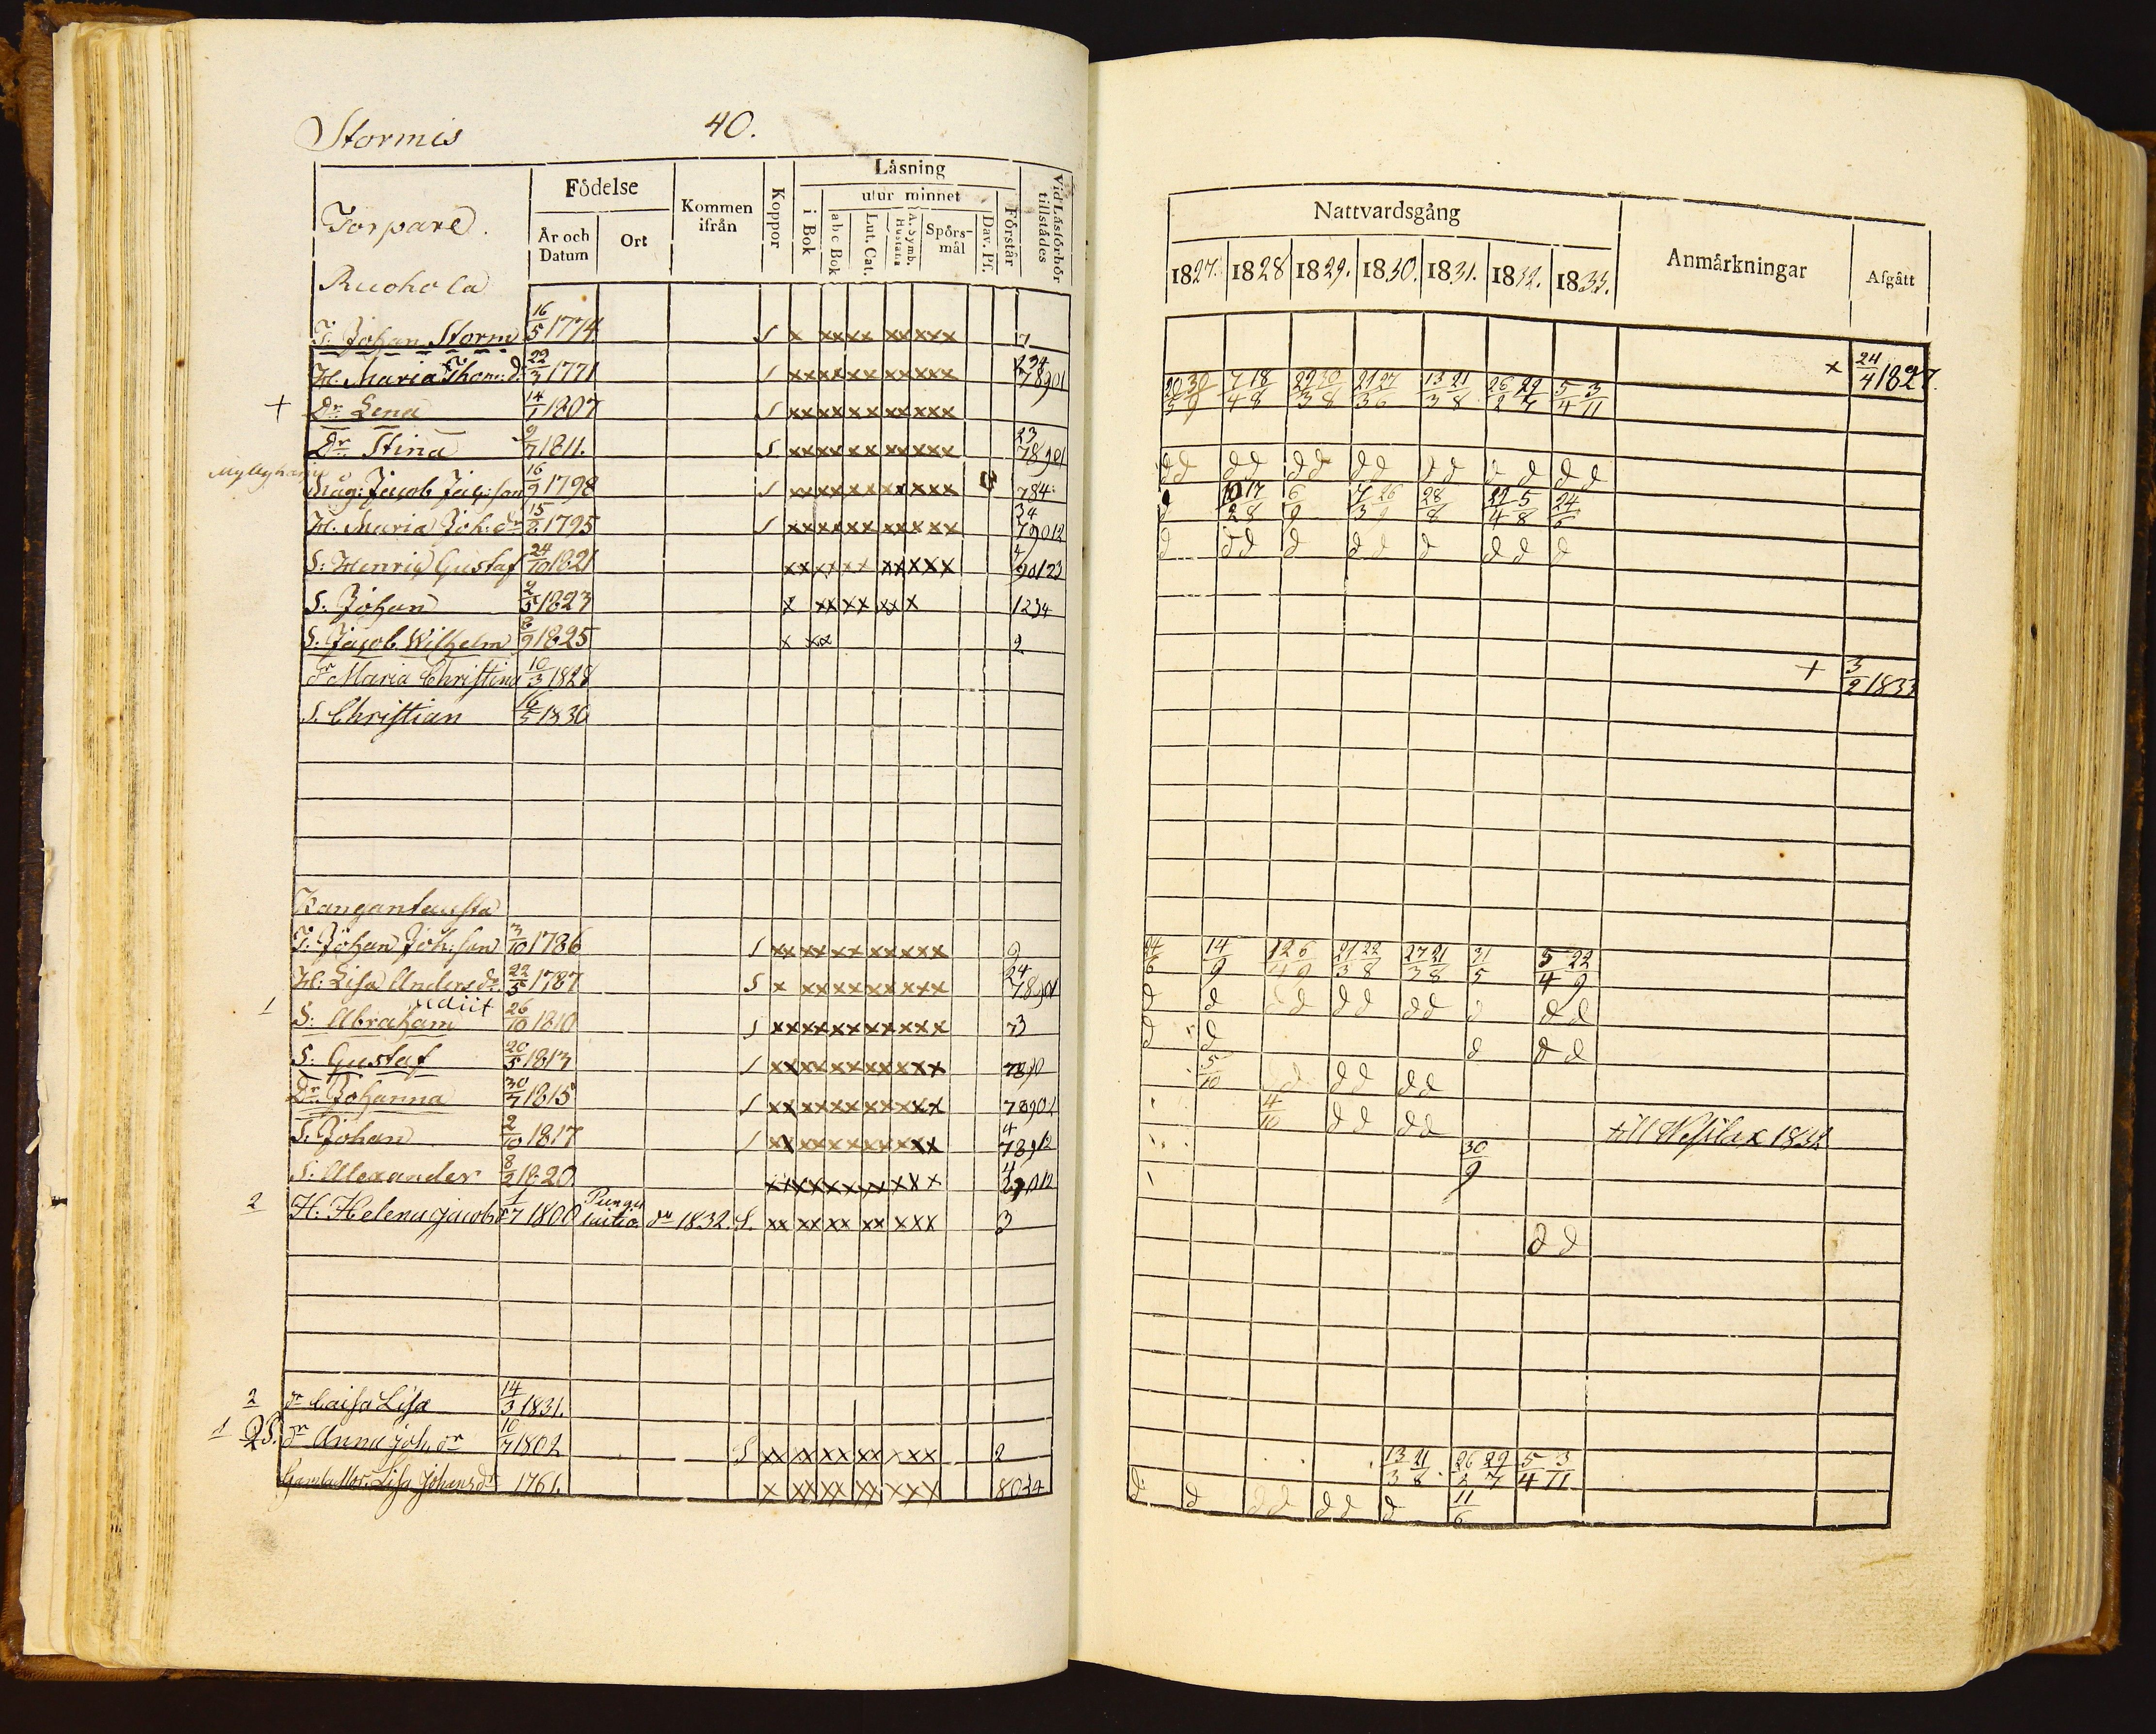 Stormis 40.
Torpare
Ruohola
Födelse
År och Datum
Ort
Kommen ifrån
Koppor
Läsning
i Bok
utur minnet
a b c Bok
Lut. Cat.
A. Symb. Hustafla
Spörsmål
Dav. Ps.
Förstår
Vid Läsförhör tillstädes
T. Johan Storm 16/5 1774 S x xxxx xxxxx 7
H. Maria Thom: dr 22/3 1771 S xxxxxx xxxxx 234 78901
+ Dr Lena 14/1 1807 S xxxxxx xxxxx
Dr Stina 9/7 1811. S xxxxxx xxxxx 23 78901
Måg: Jacob Jac: son 16/9 1798 S xxxxxx xxxxx 784
H. Maria Joh: dr 15/2 1795 S xxxxxx xxxxx 34 79012
S: Henric Gustaf 24/10 1821 xxxxxx xxxxx 4 90123
S. Johan 2/5 1823 x xxxx xx x 1234
S. Jacob Wilhelm 8/9 1825 x xx 2
dr Maria Christina 10/3 1828
S. Christian 16/5 1830
Kangantausta
T. Johan Joh: son 3/10 1786 S xxxxxx xxxxx 9
H: Lisa Anders dr 22/5 1787 S x xxxxxxxxx 24 78901
rediit
1 S: Abraham 26/10 1810 S xxxxxxxxxxx 73
S: Gustaf 20/5 1813 S xxxxxxxxxxx 7890
Dr. Johanna 30/7 1815 S xxxxxxxxxxx 78901
S. Johan 2/10 1817 S xxxxxxxxxxx 4 78912
S: Alexander 8/2 1820 xxxxxxxx xxx 4
2 H. Helena Jacobs dr 1/7 1800 dr 1832 S. xx xx xx xx xxx 3
2 dr Caisa Lisa 14/3 1831.
1 dr Anna Joh. dr 10/7 1802 S xx xx xx xx xxx 2
Gamla Mor. Lisa Johans dr 1761. x xx xx xx xxx 8034
Nattvardsgång
1827. 1828 1829. 1830. 1831. 1832. 1833.
Anmärkningar
Afgått
x 24/4 1827.
20/5 30/9 7/4 18/8 29/3 30/8 21/3 27/6 13/3 21/8 26/2 29/7 5/4 3/11
d d d d d d d d d d d d d d
d 10/2 17/8 6/9 7/3 26/9 28/8 29/4 5/8 24/6
d d d d d d d d d d
+ 3/2 1833
24/6 14/9 12/4 6/9 21/3 22/8 27/3 21/8 31/5 5/4 22/9
d d d d d d d d d d d
d d d d d
5/10 d d d d d d
4/10 d d d d till 1832
30/9
d d
13/3 21/8 26/2 29/7 5/4 3/11
d d d d d d d 11/6